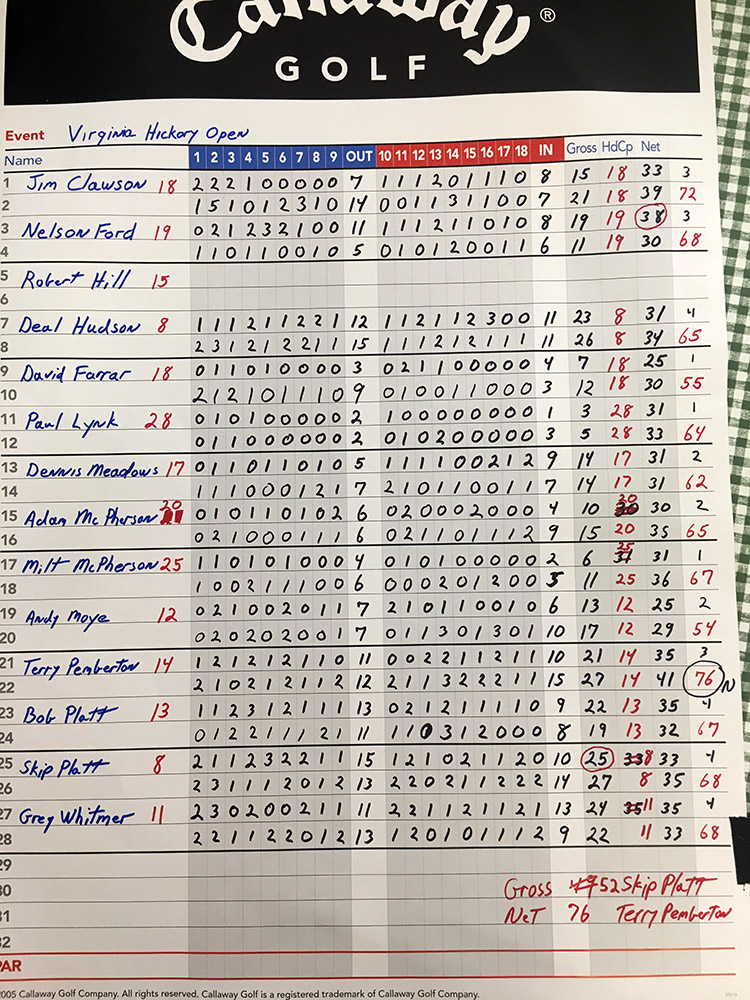 Callaway ®
GOLF
Event Virginia Hickory Open
Name 1 2 3 4 5 6 7 8 9 OUT 10 11 12 13 14 15 16 17 18 IN Gross HdCp Net
1 Jim Clawson 18 2 2 2 1 0 0 0 0 0 7 1 1 1 2 0 1 1 1 0 8 15 18 33 3
2 1 5 1 0 1 2 3 1 0 14 0 0 1 1 3 1 1 0 0 7 21 18 39 72
3 Nelson Ford 19 0 2 1 2 3 2 1 0 0 11 1 1 1 2 1 1 0 1 0 8 19 19 38 3
4 1 1 0 1 1 0 0 1 0 5 0 1 0 1 2 0 0 1 1 6 11 19 30 68
5 Robert Hill 15
6
7 Deal Hudson 8 1 1 1 2 1 1 2 2 1 12 1 1 2 1 1 2 3 0 0 11 23 8 31 4
8 2 3 1 2 1 2 2 1 1 15 1 1 1 2 1 2 1 1 1 11 26 8 34 65
9 David Farrar 18 0 1 1 0 1 0 0 0 0 3 0 2 1 1 0 0 0 0 0 4 7 18 25 1
10 2 1 2 1 0 1 1 1 0 9 0 1 0 0 1 1 0 0 0 3 12 18 30 55
11 Paul Lynk 28 0 1 0 1 0 0 0 0 0 2 1 0 0 0 0 0 0 0 0 1 3 28 31 1
12 0 1 1 0 0 0 0 0 0 2 0 1 0 2 0 0 0 0 0 3 5 28 33 64
13 Dennis Meadows 17 0 1 1 0 1 1 0 1 0 5 1 1 1 1 0 0 2 1 2 9 14 17 31 2
14 1 1 1 0 0 0 1 2 1 7 2 1 0 1 1 0 0 1 1 7 14 17 31 62
15 Adam McPherson 20 0 1 0 1 1 0 1 0 2 6 0 2 0 0 0 2 0 0 0 4 10 20 30 2
16 0 2 1 0 0 0 1 1 1 6 0 2 1 1 0 1 1 1 2 9 15 20 35 65
17 Milt McPherson 25 1 1 0 1 0 1 0 0 0 4 0 1 0 1 0 0 0 0 0 2 6 25 31 1
18 1 0 0 2 1 1 1 0 0 6 0 0 0 2 0 1 2 0 0 5 11 25 36 67
19 Andy Moye 12 0 2 1 0 0 2 0 1 1 7 2 1 0 1 1 0 0 1 0 6 13 12 25 2
20 0 2 0 2 0 2 0 0 1 7 0 1 1 3 0 1 3 0 1 10 17 12 29 54
21 Terry Pemberton 14 1 2 1 2 1 2 1 1 0 11 0 0 2 2 1 1 2 1 1 10 21 14 35 3
22 2 1 0 2 1 2 1 1 2 12 2 1 1 3 2 2 2 1 1 15 27 14 41 76 N
23 Bob Platt 13 1 1 2 3 1 2 1 1 1 13 0 2 1 2 1 1 1 1 0 9 22 13 35 4
24 0 1 2 2 1 1 1 2 1 11 1 1 0 3 1 2 0 0 0 8 19 13 32 67
25 Skip Platt 8 2 1 1 2 3 2 2 1 1 15 1 2 1 0 2 1 1 2 0 10 25 8 33 4
26 2 3 1 1 1 2 0 1 2 13 2 2 0 2 1 1 2 2 2 14 27 8 35 68
27 Greg Whitmer 11 2 3 0 2 0 0 2 1 1 11 2 2 1 1 2 1 1 2 1 13 24 11 35 4
28 2 2 1 1 2 2 0 1 2 13 1 2 0 1 0 1 1 1 2 9 22 11 33 68
29
30 Gross 52 Skip Platt
31 Net 76 Terry Pemberton
32
PAR
2005 Callaway Golf Company. All rights reserved. Callaway Golf is a registered trademark of Callaway Golf Company.